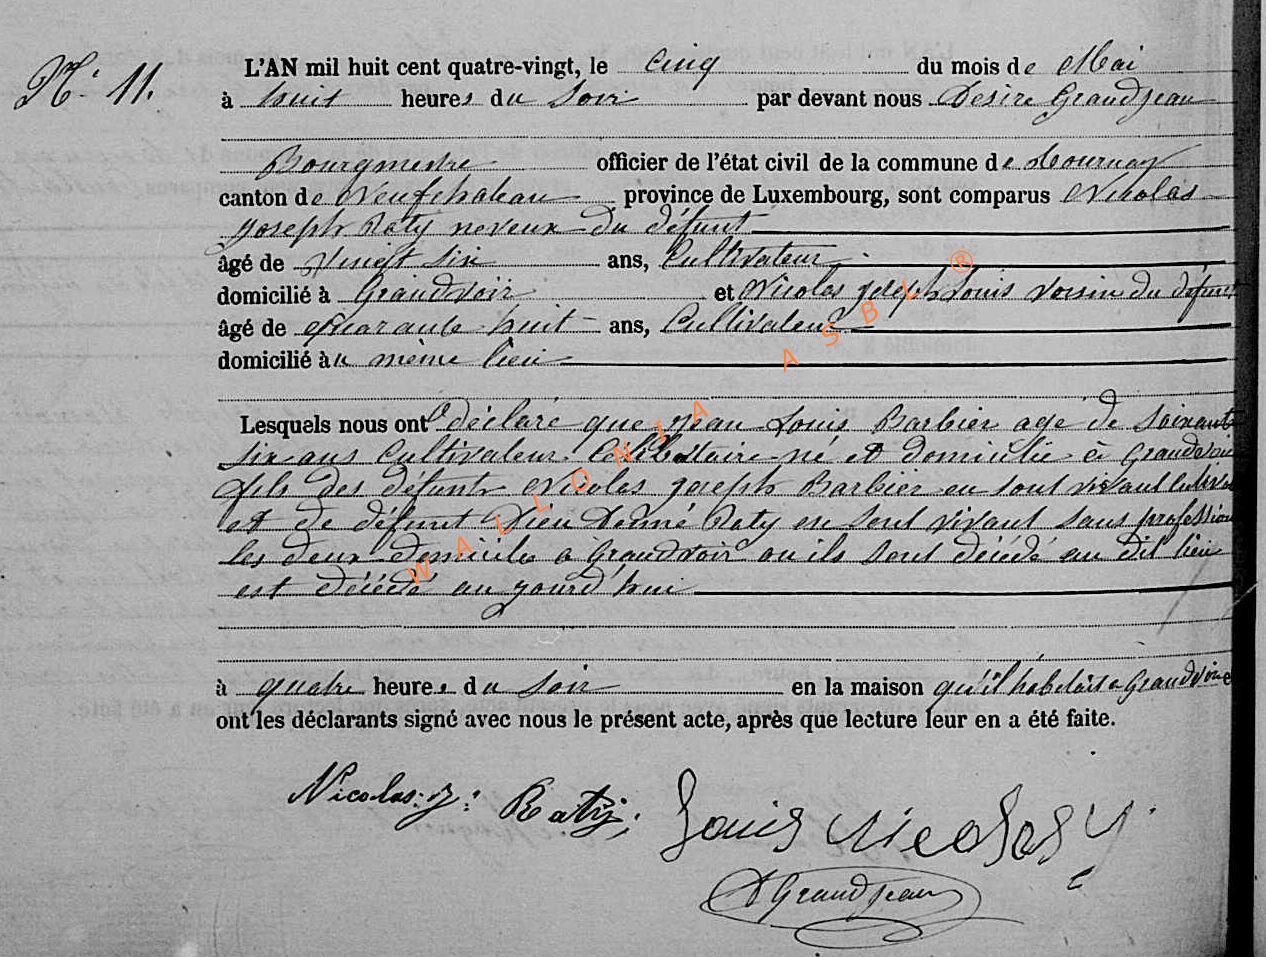 N° 11.
L'AN mil huit cent quatre-vingt, le cinq du mois de Mai
à huit heures du Soir par devant nous Désiré Grandjean
Bourgmestre officier de l'état civil de la commune de Tournay
canton de Neufchateau province de Luxembourg, sont comparus Nicolas
Joseph Raty neveux du défunt
âgé de Vingt six ans, Cultivateur
domicilié à Grandvoir et Nicolas Joseph Louis voisin du défunt
âgé de quarante huit ans, Cultivateur
domicilié àu même lieu
Lesquels nous ont déclaré que Jean Louis Barbier age de soixante
six ans Cultivateur Celibataire né et domicilié à Grandvoir
fils des défunts Nicolas Joseph Barbier en sont vivant
et de défunt Dieu Donné Raty en sont vivant sans profession
les deux domicilés a Grandvoir ou ils sont décédé au dit lieu
est décédé aujourd'hui
à quatre heures du soir en la maison qu'il habitais a Grandvoir
ont les déclarants signé avec nous le présent acte, après que lecture leur en a été faite.
Nicolas. J: Raty;
Louis Nicolas J
D Grandjean
WALLONIA ASBL ®